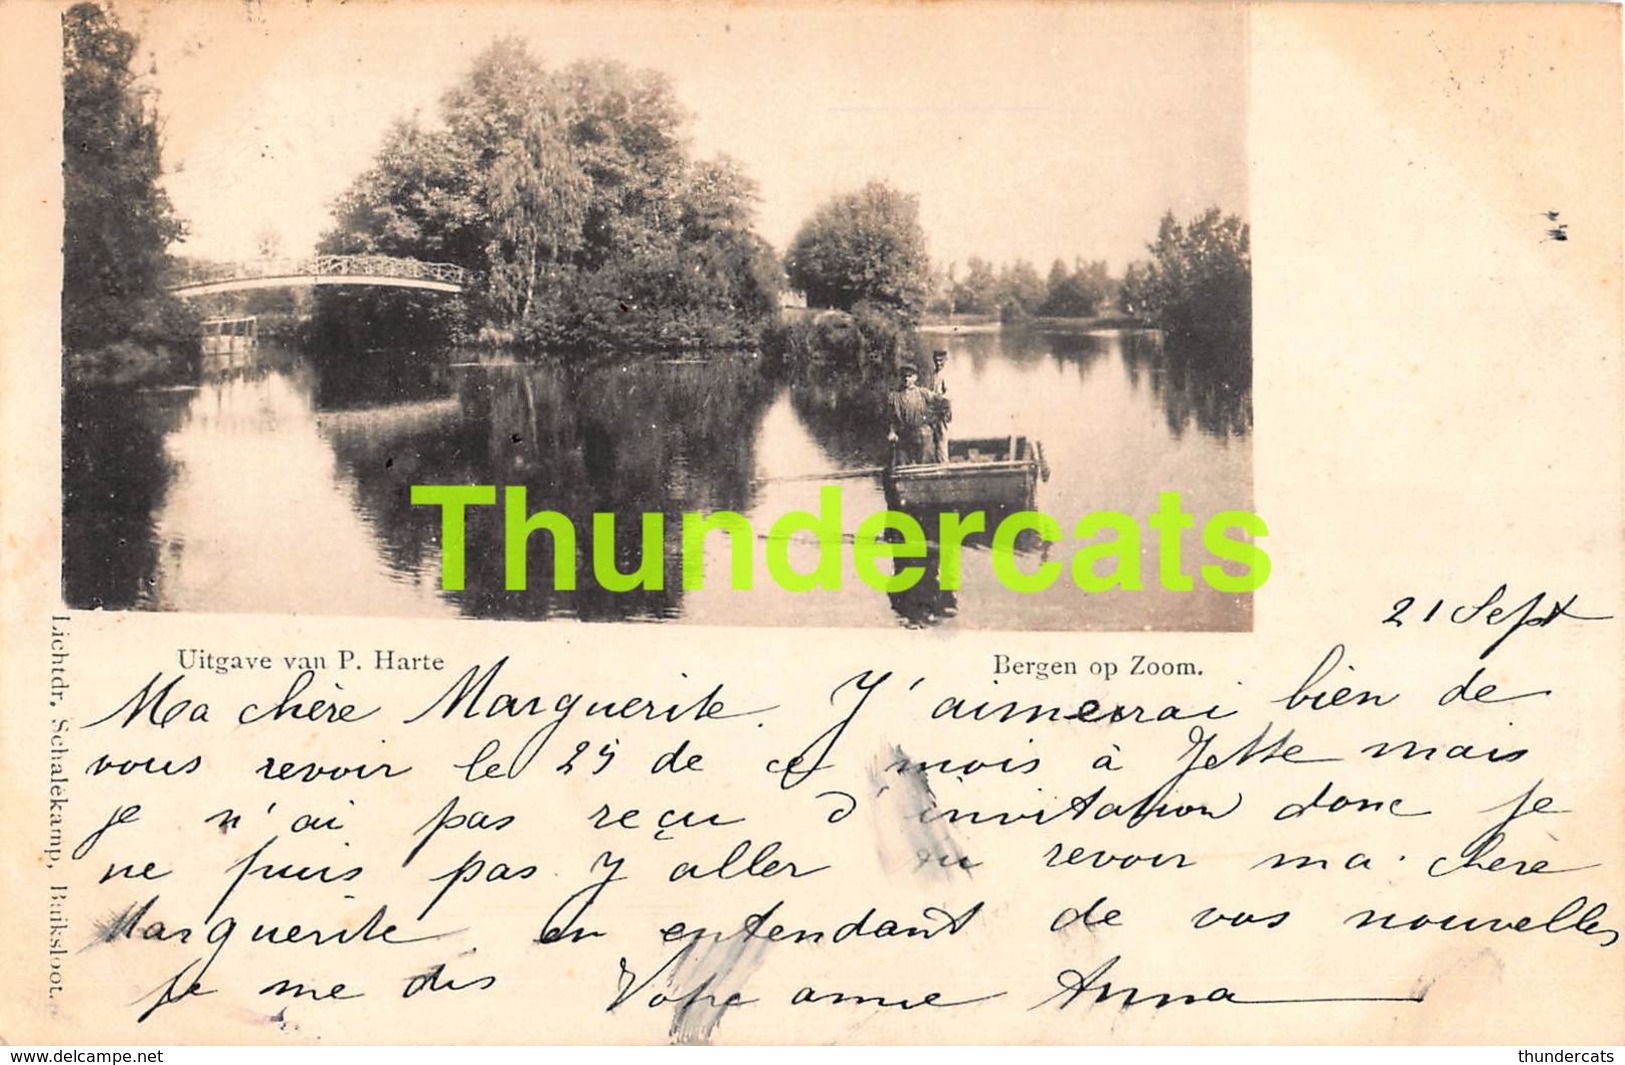 Thundercats
21 Sept
Uitgave van P. Harte
Bergen op Zoom.
Lichtdr. Schalekamp, Buiksloot.
Ma chère Marguerite. J'aimerrai bien de
vous revoir le 25 de ce mois à Jette mais
je n'ai pas reçu d'invitation donc je
ne puis pas y aller revoir ma chère
Marguerite en entendant de vos nouvelles
Je me dis Votre amie Anna
www.delcampe.net
thundercats